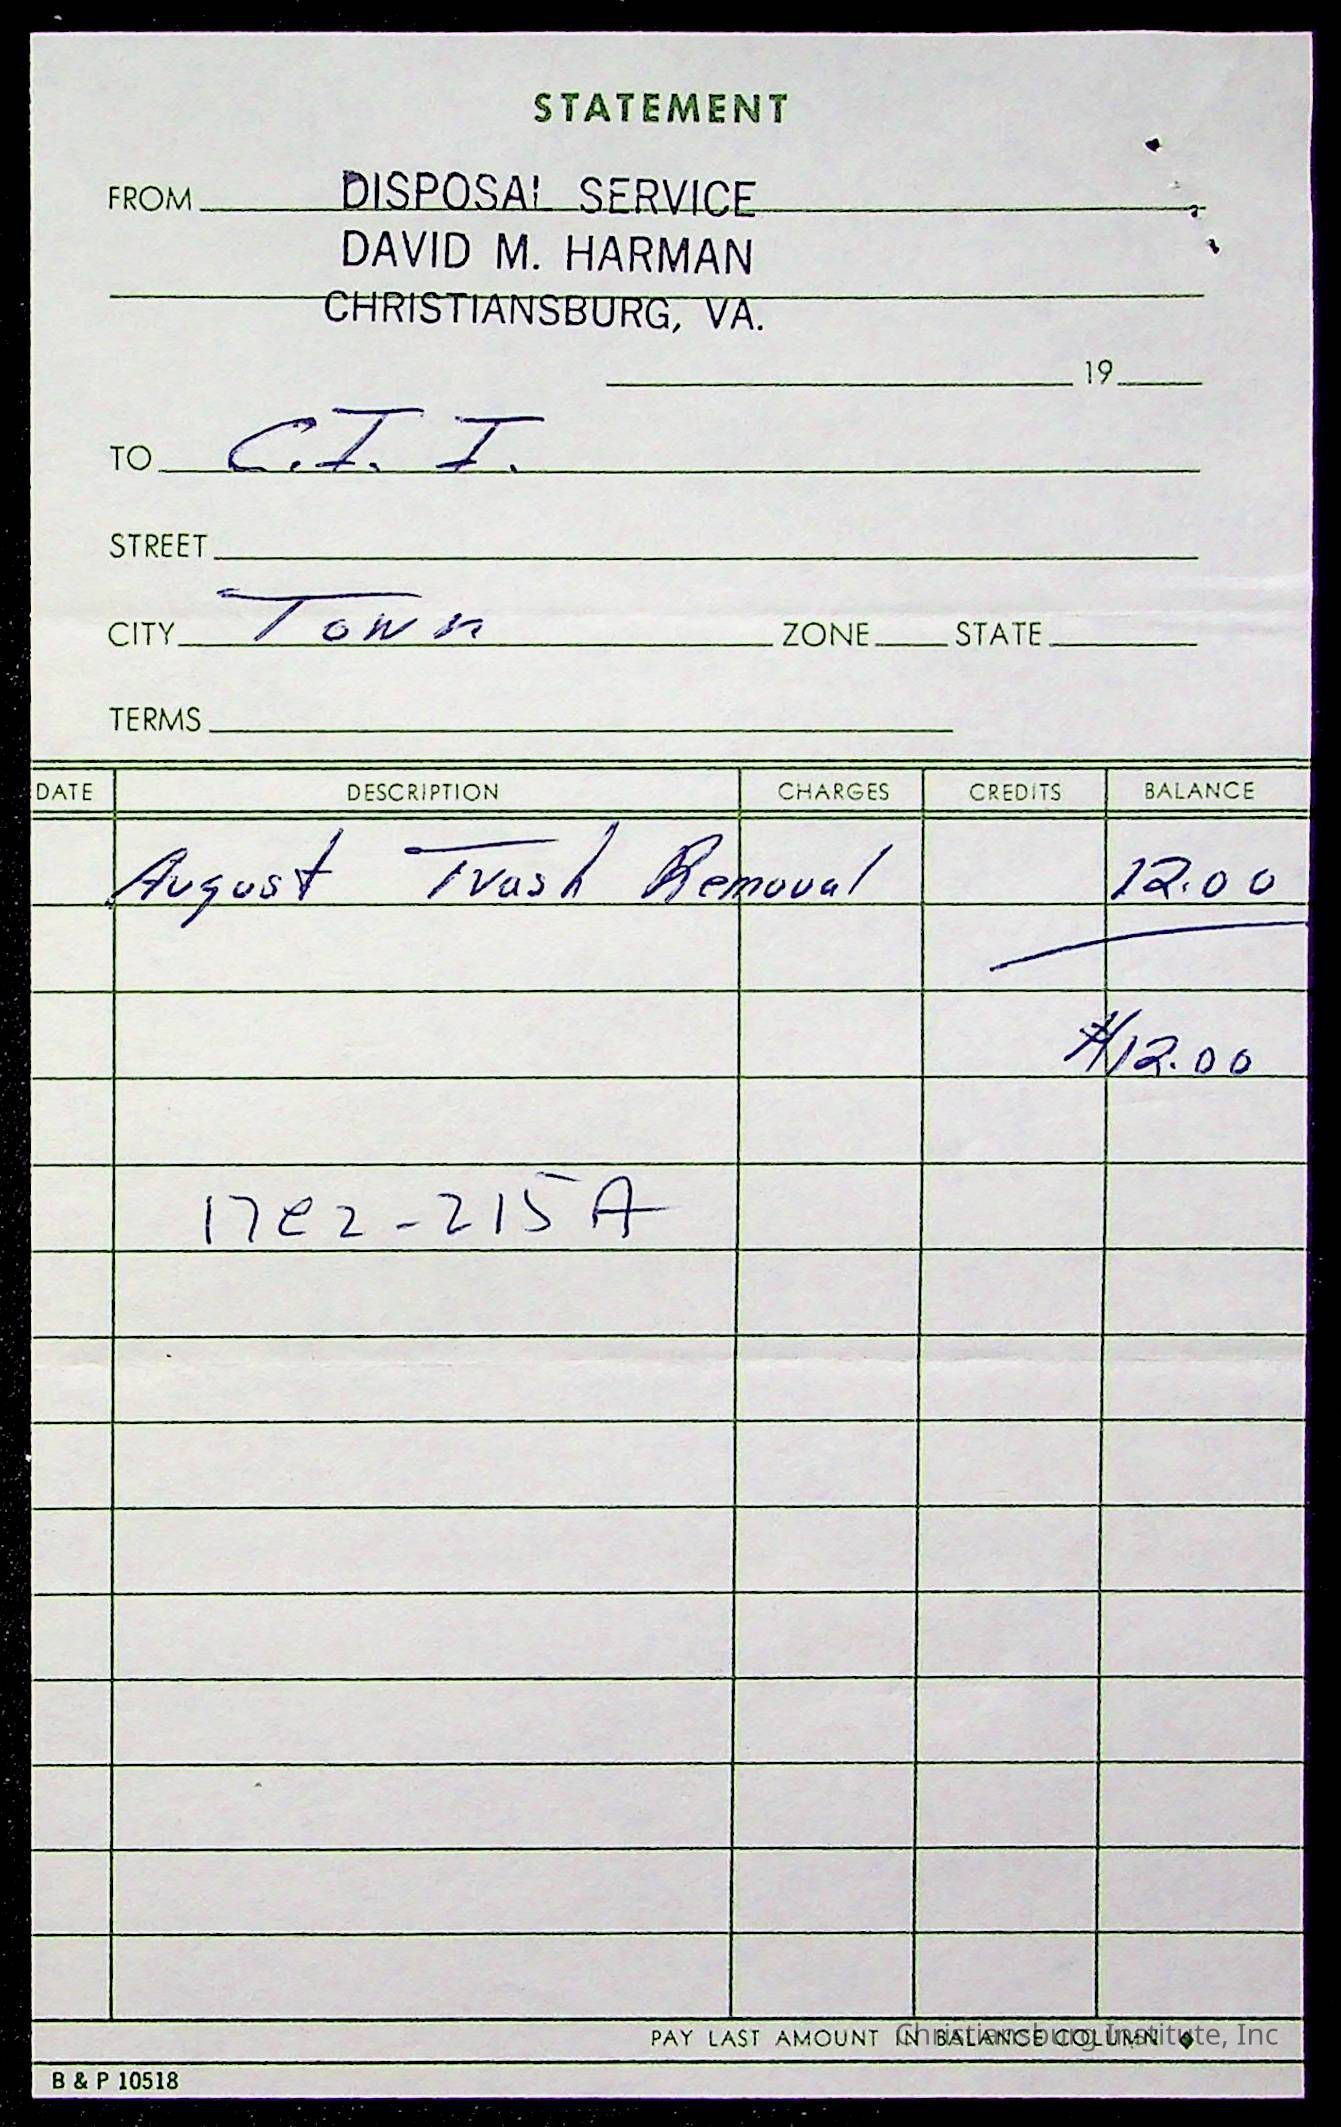 STATEMENT
FROM DISPOSAL SERVICE
DAVID M. HARMAN
CHRISTIANSBURG, VA.
19
TO C.I. I.
STREET
CITY Town ZONE STATE
TERMS
DATE DESCRIPTION CHARGES CREDITS BALANCE
August Trash Removal 12.00
$12.00
17e2-215A
PAY LAST AMOUNT IN BALANCE COLUMN
Christiansburg Institute, Inc
B & P 10518